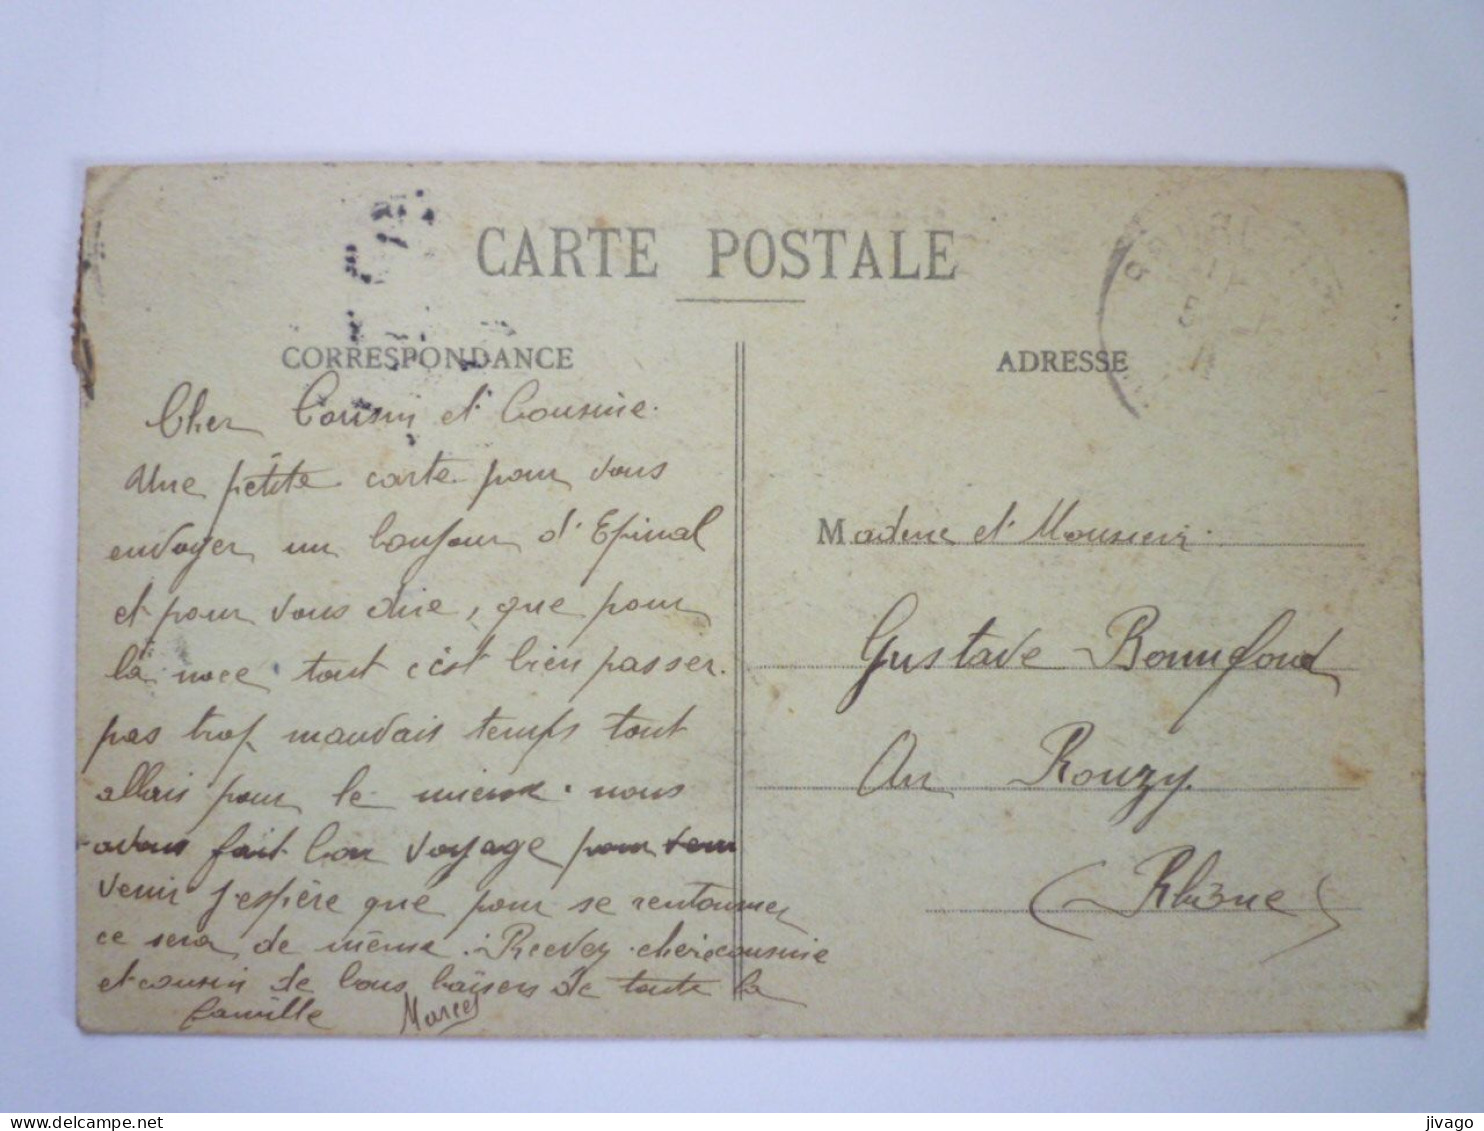 CARTE POSTALE
CORRESPONDANCE
ADRESSE
Cher Cousin et Cousine.
une pétite carte pour vous
envoyer un bonjour d'Epinal
et pour vous dire, que pour
la noce tout c'est bien passer.
pas trop mauvais temps tout
allais pour le mieux. nous
avons fait bon voyage pour venir
venir j'espère que pour se rentourner
ce sera de même. Recevez cousine
et cousin de bons baisers de toute la
famille Marcel
Madme et Monsieur.
Gustave Bonnefond
Au Rouzy.
(Rhône)
delcampe.net
jivago